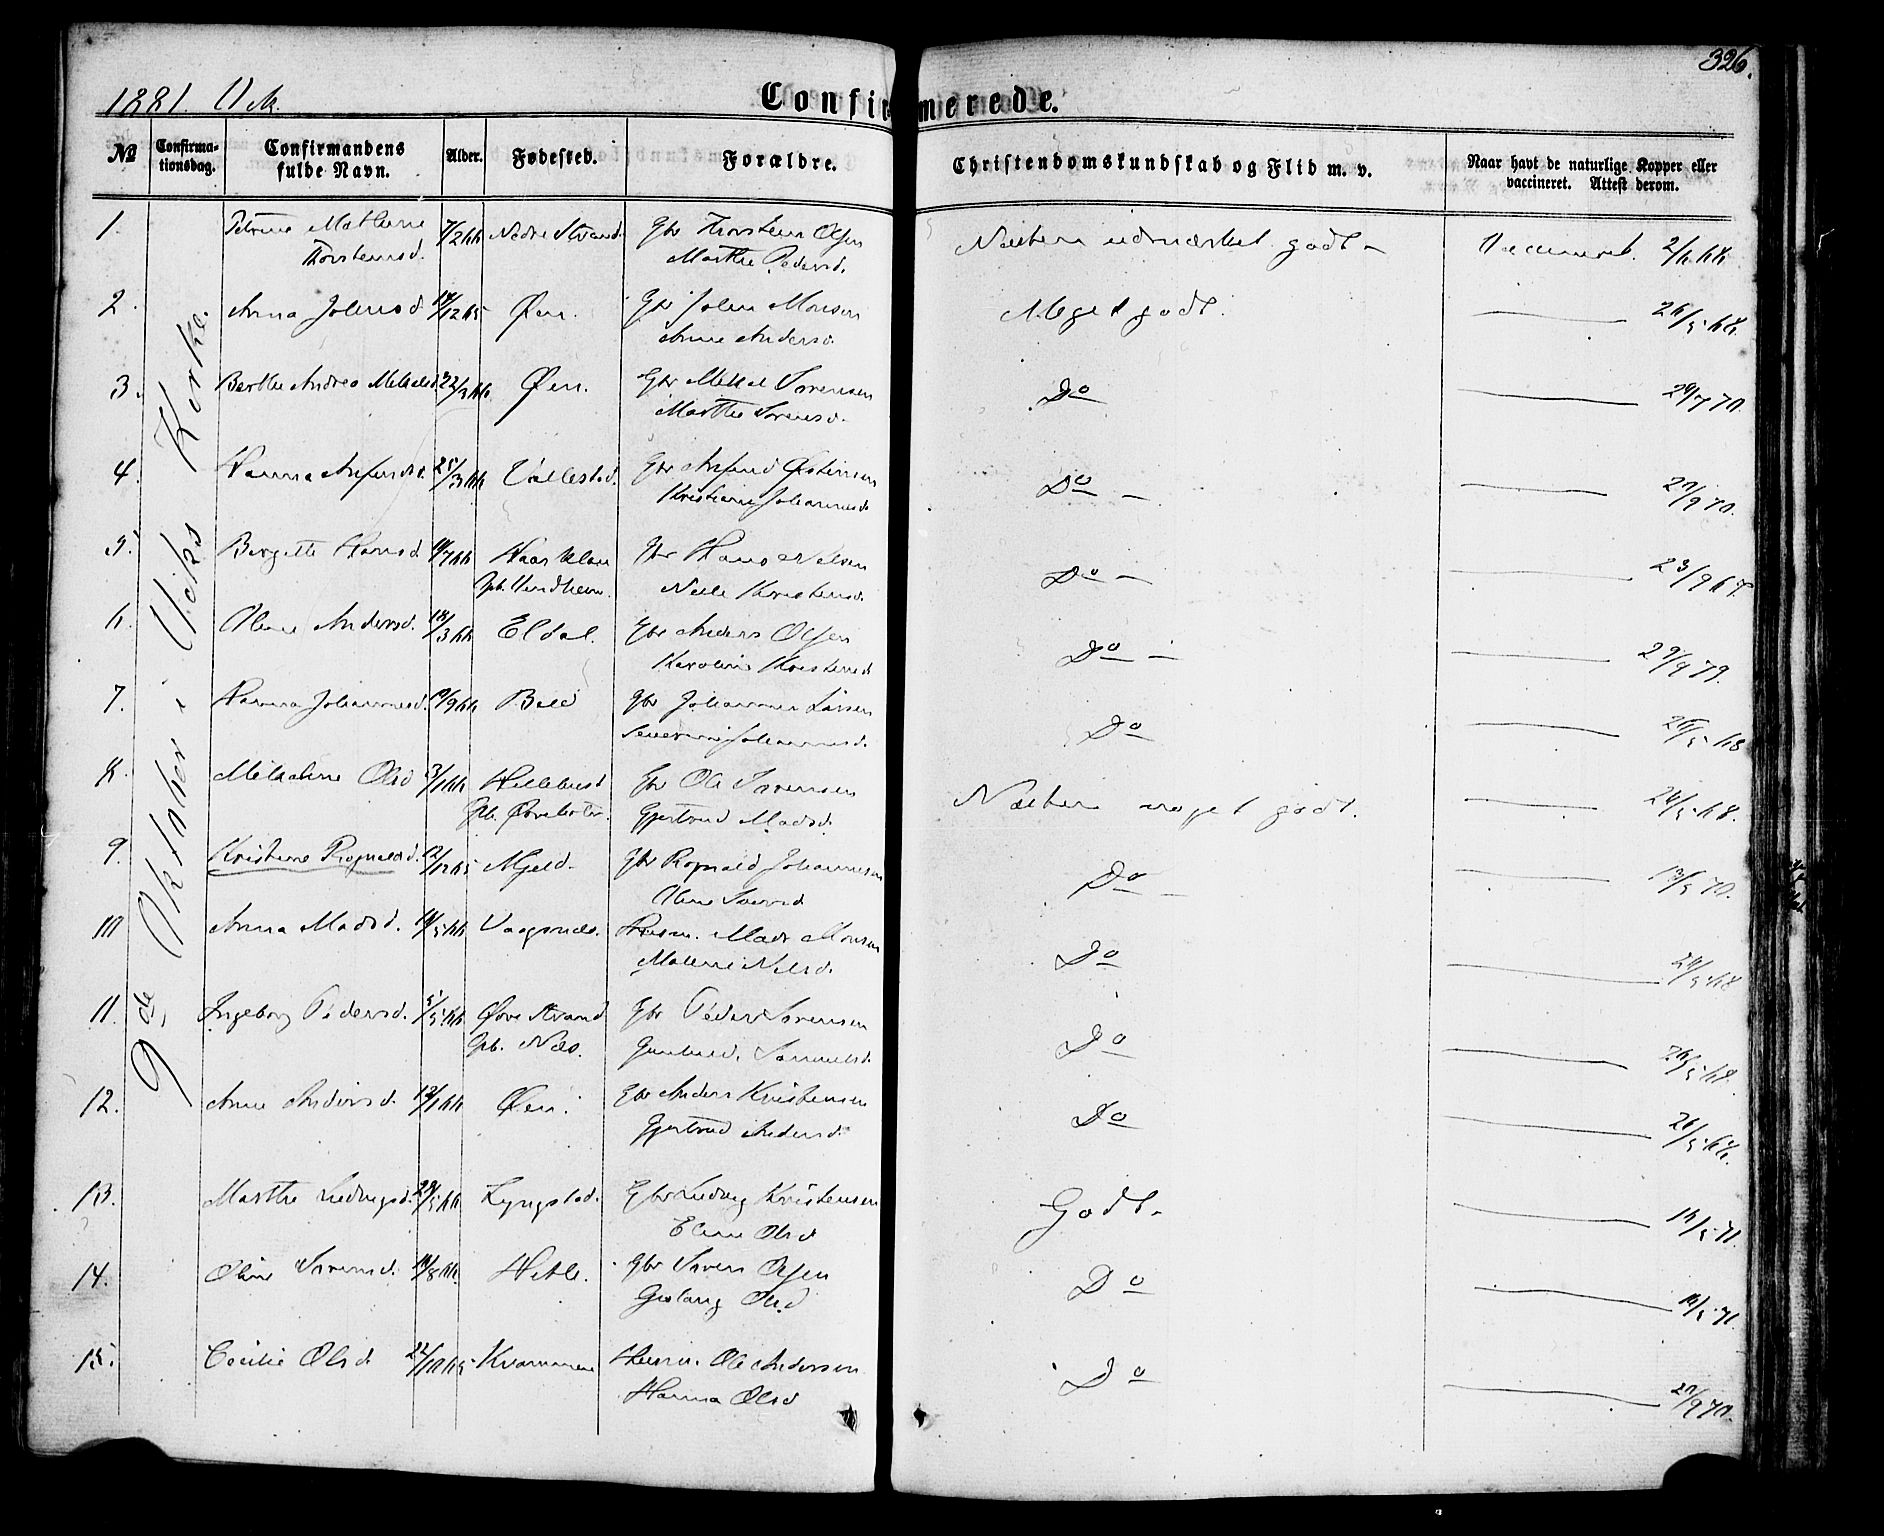 326.
1881. Vik.
Confirmerede.
No
Confirma-
tionsdag.
Confirmandens
fulde Navn.
Alder.
Fødested.
Forældre.
Christendomskundskab og Flid m. v.
Naar havt de naturlige Kopper eller
vaccineret. Attest derom.
9de Oktober i Viks Kirke.
1. Petrine Mathine 7/2 66 Nedre Strand. Gbr Thorsten Olsen Næsten udmærket godt - Vaccineret. 2/6 68
Thorstensd. Marthe Pedersd.
2. Anna Johnsd. 14/12 65 Øen. Gbr John Monsen Meget godt. 26/5 68.
Anne Andersd.
3. Berthe Andrea Mikkelsd 22/3 66 Øen. Gbr Mikkel Sørensen Do 29/7 70.
Marthe Sørensd.
4. Hanna Anfinds. 25/3 66 Vallestad. Gbr Anfind Østensen Do - 27/9 70.
Kristiane Johannesd
5. Bergitte Hansd 10/7 66 Gbr Hans Nilsen Do - 23/9 67
Pb. Nille Kristensd.
6. Oline Andersd. 18/3 66 Eldal. Gbr Anders Olsen Do - 27/9 79.
Karoline Kristensd
7. Hanna Johannesd. 10/9 66 Gbr Johannes Larsen Do 26/5 68
Severine Johannesd.
8. Mikaline Olsd 3/1 66 Gbr Ole Sørensen Næsten meget godt. 26/5 68.
Pb. Gjertrud Madsd.
9. Kristine Rognaldsd. 12/12 65 Mjeld. Gbr Rognald Johannesen Do - 13/5 70.
Oline
10 Anna Madsd. 10/5 66 Vaagsnæs. Husm. Mads Monsen Do 26/5 68
Malene Nilsd.
11. Ingeborg Pedersd. 5/5 66 Øvre Strand Gbr Peder Sørensen Do 26/5 68.
Pb. Næs. Gunhild Samuelsd.
12. Anne Andersd. 12/1 66 Øen. Gbr Anders Kristensen Do 26/5 68.
Gjertrud Andersd.
13. Marthe Ludvigsd. 29/5 66 Lyngstad. Gbr Ludvig Kristensen Godt. 16/5 71.
Eline Olsd
14. Oline Sørensd. 14/8 66. Hetle. Gbr Søren Olsen Do 16/5 71.
Guslaug Olsd
15. Cecilie Olsd. 22/10 65 Kvammene Husm. Ole Andersen Do 27/9 70.
Hanna Olsd